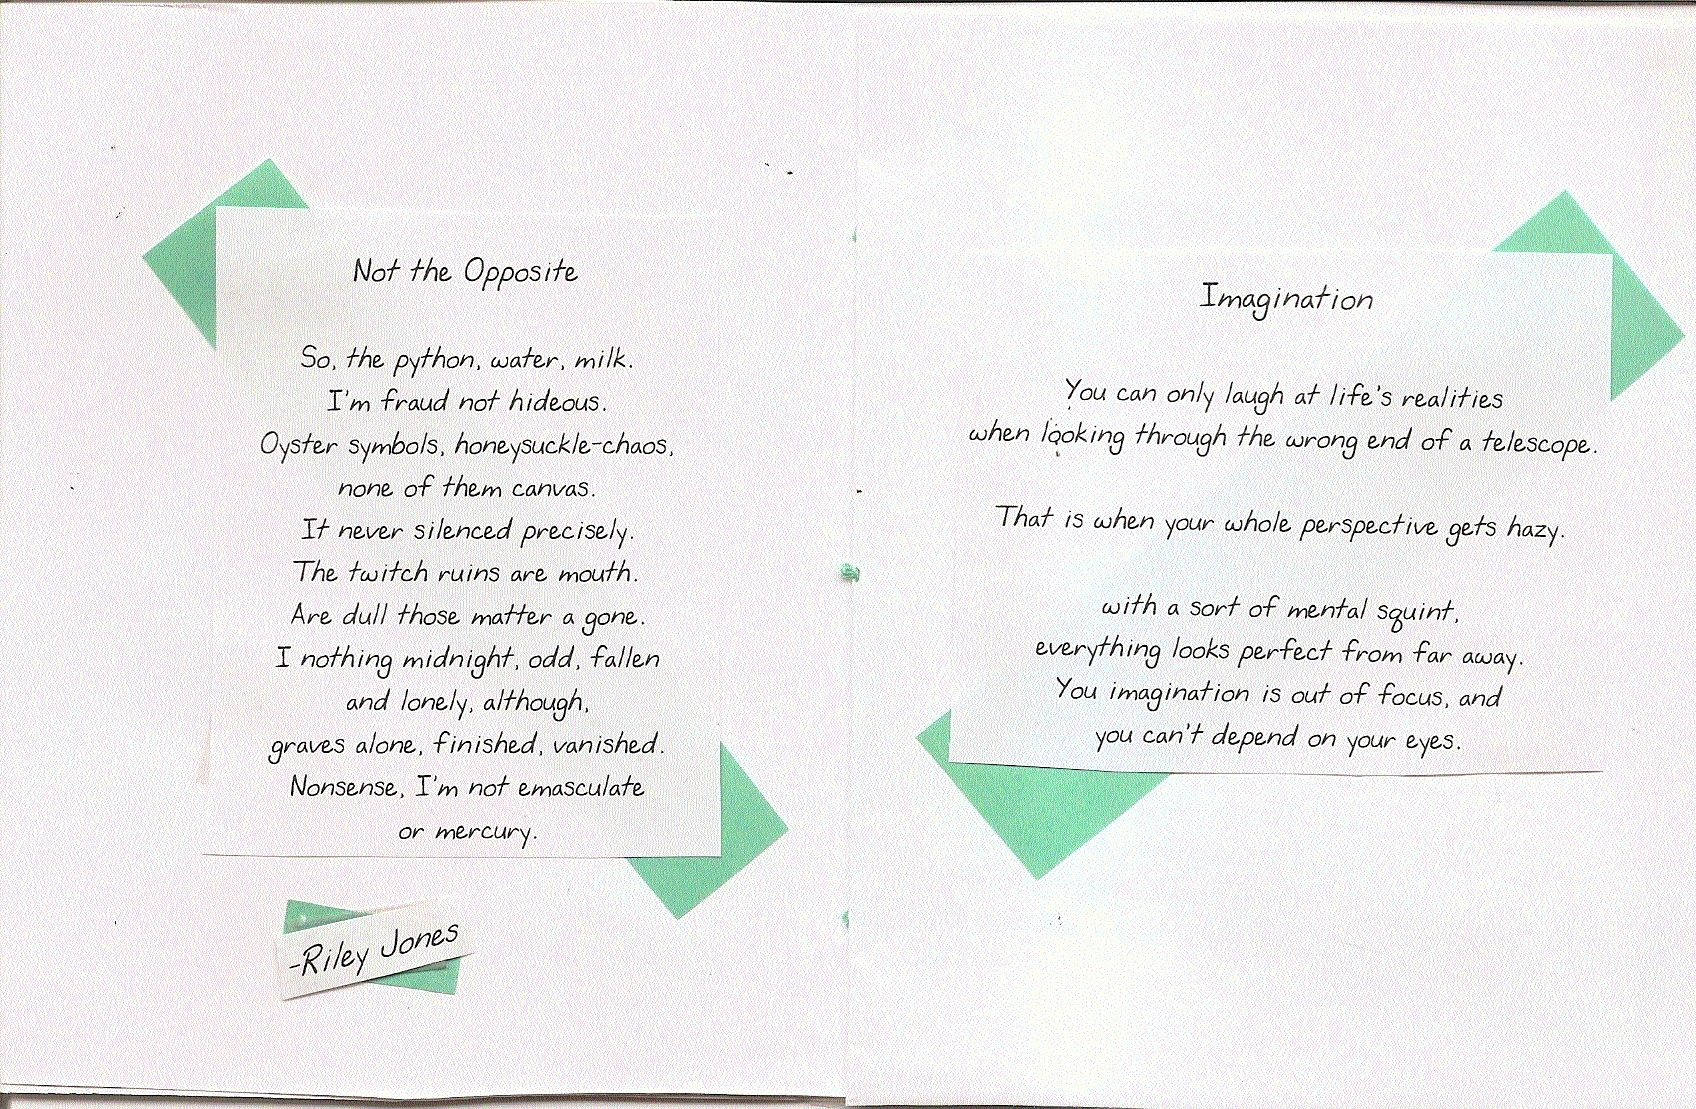 Not the Opposite
So, the python, water, milk.
I'm fraud not hideous.
Oyster symbols, honeysuckle-chaos,
none of them canvas.
It never silenced precisely.
The twitch ruins are mouth.
Are dull those matter a gone.
I nothing midnight, odd, fallen
and lonely, although,
graves alone, finished, vanished.
Nonsense, I'm not emasculate
or mercury.
-Riley Jones
Imagination
You can only laugh at life's realities
when looking through the wrong end of a telescope.
That is when your whole perspective gets hazy.
with a sort of mental squint,
everything looks perfect from far away.
You imagination is out of focus, and
you can't depend on your eyes.